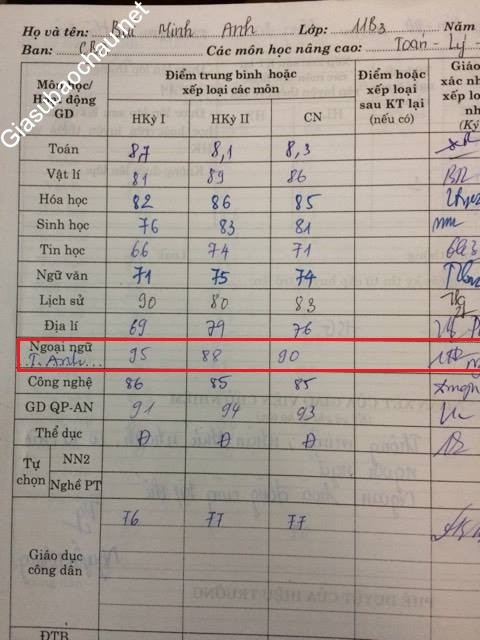 Giasubaochau.net
Họ và tên: Bùi Minh Anh Lớp: 11B3 Năm
Ban: CB Các môn học nâng cao: Toán - Lý -
Môn học/ Hoạt động GD
Điểm trung bình hoặc xếp loại các môn
Điểm hoặc xếp loại sau KT lại (nếu có)
Giáo
xác nh
xếp lo
nh
(Ký
HKỳ I HKỳ II CN
Toán 8,7 8,1 8,3
Vật lí 81 89 86
Hóa học 82 86 85
Sinh học 76 83 81
Tin học 66 74 71
Ngữ văn 71 75 74
Lịch sử 90 80 83
Địa lí 69 79 76
Ngoại ngữ
T. Anh 95 88 90
Công nghệ 86 85 85
GD QP-AN 91 94 93
Thể dục Đ Đ Đ
Tự chọn
NN2
Nghề PT
76 77 77
Giáo dục
công dân
ĐTB